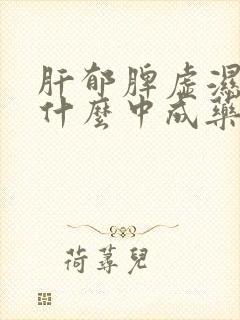 肝郁脾虚湿
什麼中成藥
荷蕁兒